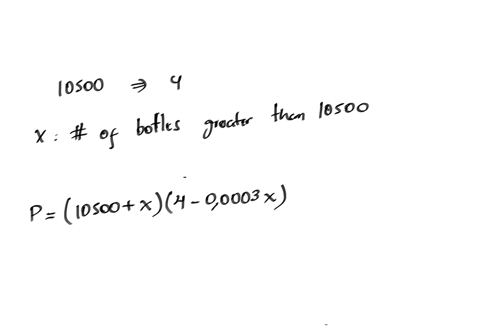 10500 ⇒ 4
x : # of bottles greater than 10500
P = (10500 + x)(4 - 0,0003x)